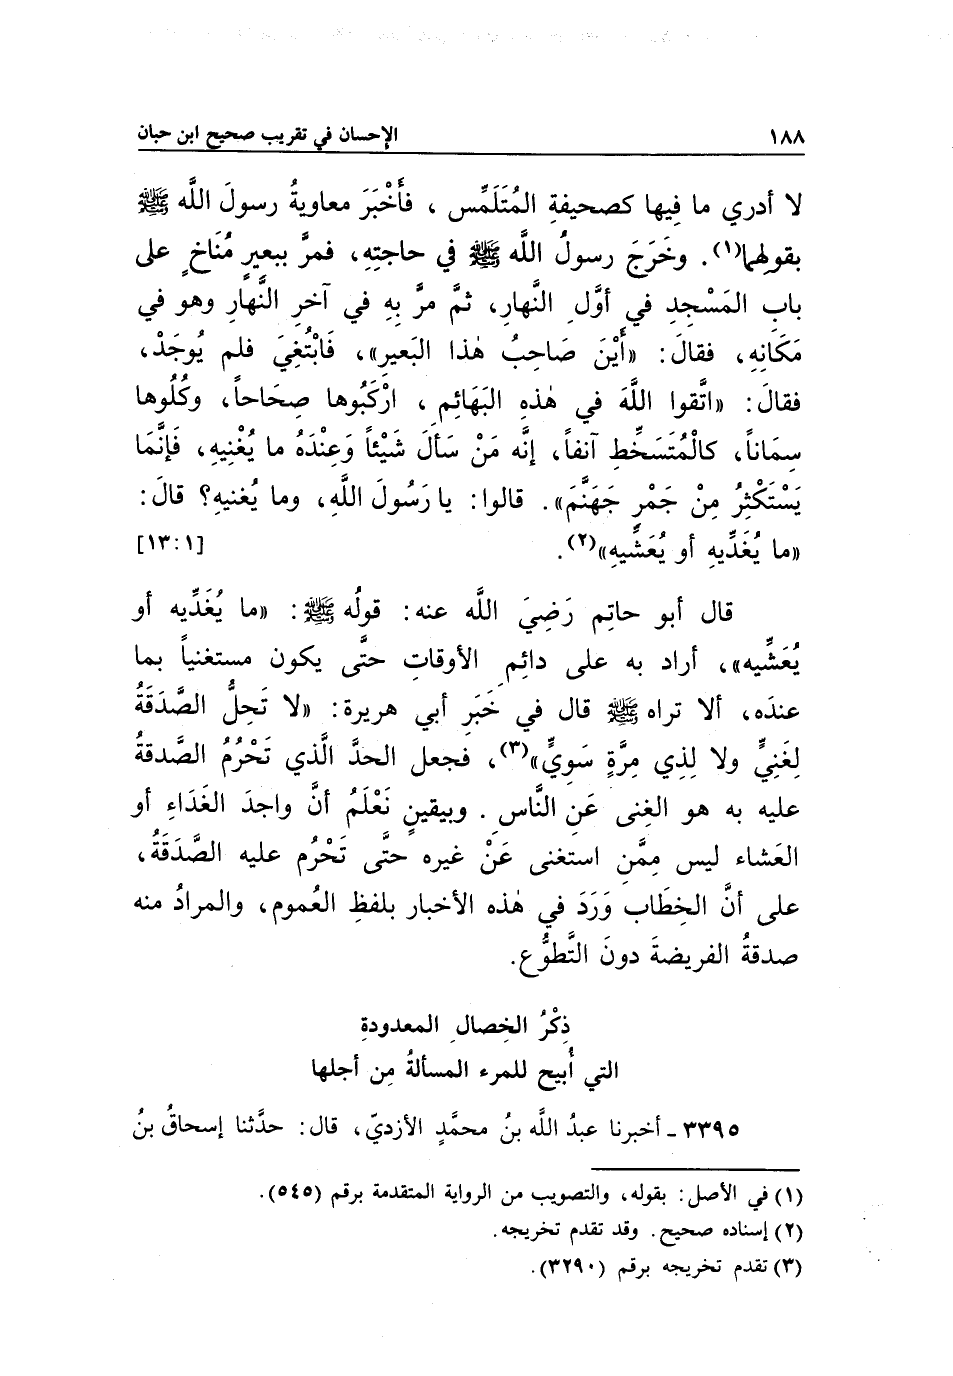 ١٨٨ الإحسان في تقريب صحيح ابن حبان
لا أدري ما فِيها كصحيفةِ المُتَلَمِّس ، فأَخْبَرَ معاويةُ رسولَ اللَّه ﷺ
بقولِهما(١). وخَرَجَ رسولُ اللَّه ﷺ في حاجتِهِ، فمرَّ ببعيرٍ مُنَاخٍ على
بابِ المَسْجِدِ في أوَّلِ النَّهارِ، ثمَّ مرَّ بِهِ في آخرِ النَّهارِ وهو في
مَكَانِهِ، فقالَ: «أَيْنَ صَاحِبُ هٰذا البَعيرِ»، فَابْتُغِيَ فلم يُوجَدْ،
فقالَ: «اتَّقوا اللَّهَ في هٰذهِ البَهَائِمِ ، ارْكَبُوها صِحَاحاً، وكُلُوها
سِمَاناً، كالْمُتَسَخِّطِ آنفاً، إنَّه مَنْ سَألَ شَيْئاً وَعِنْدَهُ ما يُغْنِيهِ، فَإنَّمَا
يَسْتَكْثِرُ مِنْ جَمْرِ جَهَنَّمَ». قالوا: يا رَسُولَ اللَّهِ، وما يُغنيهِ؟ قالَ:
«ما يُغَدِّيهِ أو يُعَشِّيهِ»(٢). [١٣:١]
قال أبو حاتِم رَضِيَ اللَّه عنه: قولُه ﷺ: «ما يُغَدِّيه أو
يُعَشِّيه»، أراد به على دائِمِ الأوقاتِ حتَّى يكون مستغنياً بما
عندَه، ألا تراه ﷺ قال في خَبَرِ أبي هريرة: «لا تَحِلُّ الصَّدَقَةُ
لِغَنِيٍّ ولا لِذِي مِرَّةٍ سَوِيٍّ»(٣)، فجعل الحدَّ الَّذي تَحْرُمُ الصَّدقةُ
عليه به هو الغِنى عَنِ النَّاسِ . وبيقينٍ نَعْلَمُ أنَّ واجدَ الغَدَاءِ أو
العَشاء ليس مِمَّنِ استغنى عَنْ غيره حتَّى تَحْرُم عليه الصَّدَقَةُ،
على أنَّ الخِطَاب وَرَدَ في هٰذه الأخبار بلفظِ العُموم، والمرادُ منه
صدقةُ الفريضةَ دونَ التَّطوُّع.
ذِكْرُ الخِصالِ المعدودةِ
التي أُبيح للمرء المسألةُ مِن أجلها
٣٣٩٥ ـ أخبرنا عبدُ اللَّه بنُ محمَّدٍ الأزديّ، قال: حدَّثنا إسحاقُ بنُ
(١) في الأصل: بقوله، والتصويب من الرواية المتقدمة برقم (٥٤٥).
(٢) إسناده صحيح. وقد تقدم تخريجه.
(٣) تقدم تخريجه برقم (٣٢٩٠).